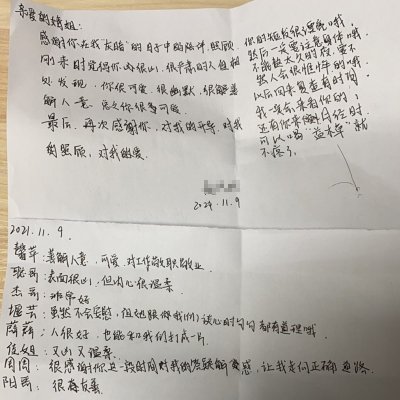 亲爱的婧姐:
感谢你在我"灰暗"的日子中的陪伴,照顾
刚来时觉得你凶很凶,很严肃的人但相
处发现,你很可爱,很幽默,很能善
解人意,总之你很可爱。
最后,再次感谢你,对我的开导,对我
的照顾,对我的爱
2021.11.9
你的短发很漂亮哦,
然后一定要注意身体哦,
不能熬太久的夜,要不
然人会很憔悴的哦
以后回来复查有时间
我一定会来看你的!
还有你来时
可以喝"益母草"就
不疼了。
2021.11.9.
馨苹:善解人意,可爱,对工作敬职敬业
聪哥:表面很凶,但内心很温柔
杰哥:非常好
堰芸:虽然不会安慰,但她跟你(我们)谈心时句句都有道理哦
萍萍:人很好,也能和我们打成一片
佳姐:又凶又温柔
周周:很感谢你这一段时间对我的答疑解惑,让我走向正确道路
阳哥:很尊友善